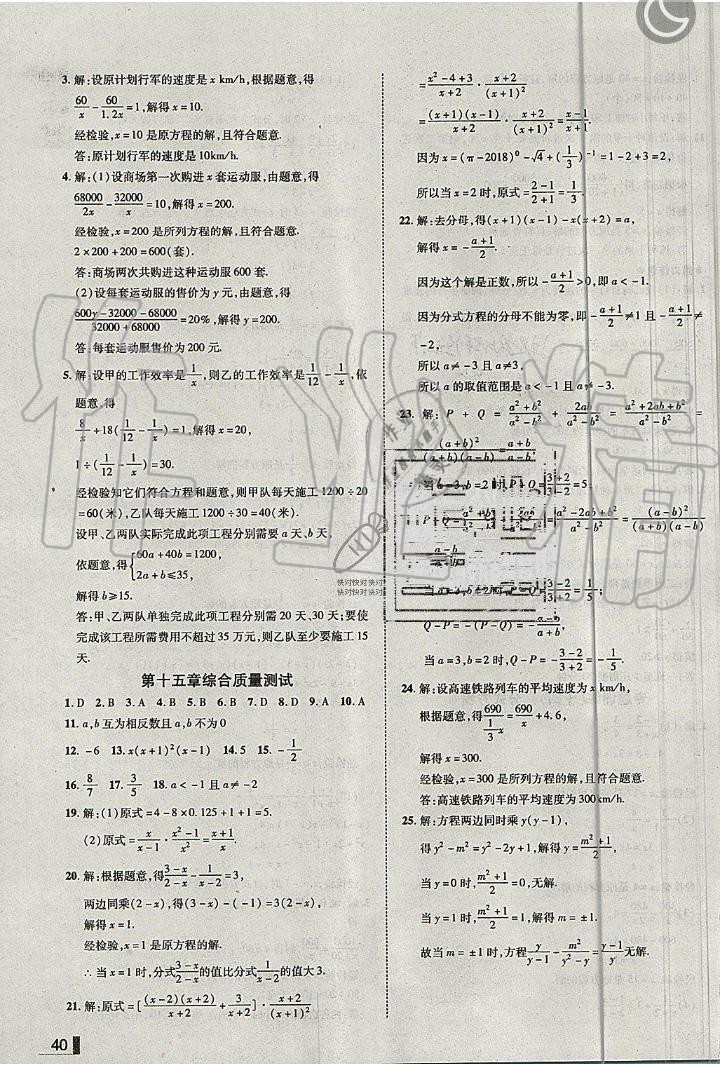 3. 解:设原计划行军的速度是 x km/h,根据题意,得
60/x - 60/1.2x = 1,解得 x = 10.
经检验,x = 10 是原方程的解,且符合题意.
答:原计划行军的速度是 10km/h.
4. 解:(1)设商场第一次购进 x 套运动服,由题意,得
68000/2x - 32000/x = 10,解得 x = 200.
经检验,x = 200 是所列方程的解,且符合题意.
2×200+200=600(套).
答:商场两次共购进这种运动服 600 套.
(2)设每套运动服的售价为 y 元,由题意,得
(600y-32000-68000)/(32000+68000) = 20%,解得 y = 200.
答:每套运动服的售价为 200 元.
5. 解:设甲的工作效率是 1/x,则乙的工作效率是 1/12 - 1/x,依
题意,得
8/x + 18(1/12 - 1/x) = 1,解得 x = 20,
1÷(1/12 - 1/x) = 30.
经检验知它们符合方程和题意,则甲队每天施工 1200÷20
=60(米),乙队每天施工 1200÷30=40(米).
设甲、乙两队实际完成此项工程分别需要 a 天、b 天,
依题意,得{60a+40b=1200, 2a+b≤35,
解得 b≥15.
答:甲、乙两队单独完成此项工程分别需 20 天、30 天;要使
完成该工程所需费用不超过 35 万元,则乙队至少要施工 15
天.
第十五章综合质量测试
1. D 2. B 3. C 4. B 5. C 6. D 7. B 8. D 9. A 10. A
11. a,b 互为相反数且 a,b 不为 0
12. -6 13. x(x+1)²(x-1) 14. 5 15. -1/2
16. 8/7 17. 3/5 18. a<-1 且 a≠-2
19. 解:(1)原式 = 4-8×0.125+1+1=5.
(2)原式 = x/(x-1) · (x²-1)/x² = (x+1)/x.
20. 解:根据题意,得 (3-x)/(2-x) - 1/(x-2) = 3,
两边同乘(2-x),得(3-x)+1=3(2-x),
解得 x = 1.
经检验,x = 1 是原方程的解.
∴ 当 x = 1 时,分式 (3-x)/(2-x) 的值比分式 1/(x-2) 的值大 3.
21. 解:原式 = [(x-2)(x+2)/(x+2) + 3/(x+2)] · (x+2)/(x+1)²
40
= (x²-4+3)/(x+2) · (x+2)/(x+1)²
= (x+1)(x-1)/(x+2) · (x+2)/(x+1)² = (x-1)/(x+1).
因为 x = (π-2018)⁰ - √4 + (1/3)⁻¹ = 1-2+3=2,
所以当 x = 2 时,原式 = (2-1)/(2+1) = 1/3.
22. 解:去分母,得(x+1)(x-1)-x(x+2)=a,
解得 x = -(a+1)/2.
因为这个解是正数,所以 -(a+1)/2 > 0,即 a < -1.
因为分式方程的分母不能为零,即 -(a+1)/2 ≠ 1 且 -(a+1)/2 ≠
-2,
所以 a ≠ -3 且 a ≠ 3,
所以 a 的取值范围是 a < -1 且 a ≠ -3.
23. 解:P + Q = (a²+b²)/(a²-b²) + 2ab/(a²-b²) = (a²+2ab+b²)/(a²-b²) =
(a+b)²/(a+b)(a-b) = (a+b)/(a-b),
当 a=3,b=2 时,P+Q = (3+2)/(3-2) = 5.
P - Q = (a²+b²)/(a²-b²) - 2ab/(a²-b²) = (a²-2ab+b²)/(a²-b²) = (a-b)²/(a+b)(a-b)
= (a-b)/(a+b),
当 a=3,b=2 时,P-Q = (3-2)/(3+2) = 1/5;
Q-P = -(P-Q) = -(a-b)/(a+b),
当 a=3,b=2 时,Q-P = -(3-2)/(3+2) = -1/5.
24. 解:设高速铁路列车的平均速度为 x km/h,
根据题意,得 690/(1/3 x) = 690/x + 4.6,
解得 x = 300.
经检验,x = 300 是所列方程的解,且符合题意.
答:高速铁路列车的平均速度为 300km/h.
25. 解:方程两边同时乘 y(y-1),
得 y²-m²=y²-y,解得 y=m².
当 y=0 时,(m²+1)/m²=0,无解.
当 y=1 时,(m²+1)/m²=1,解得 m=±1.
故当 m=±1 时,方程 y/(y-1) - m²/(y²-y) = (y-1)/y 无解.
快对快对 快对
快对快对 快对
作业精